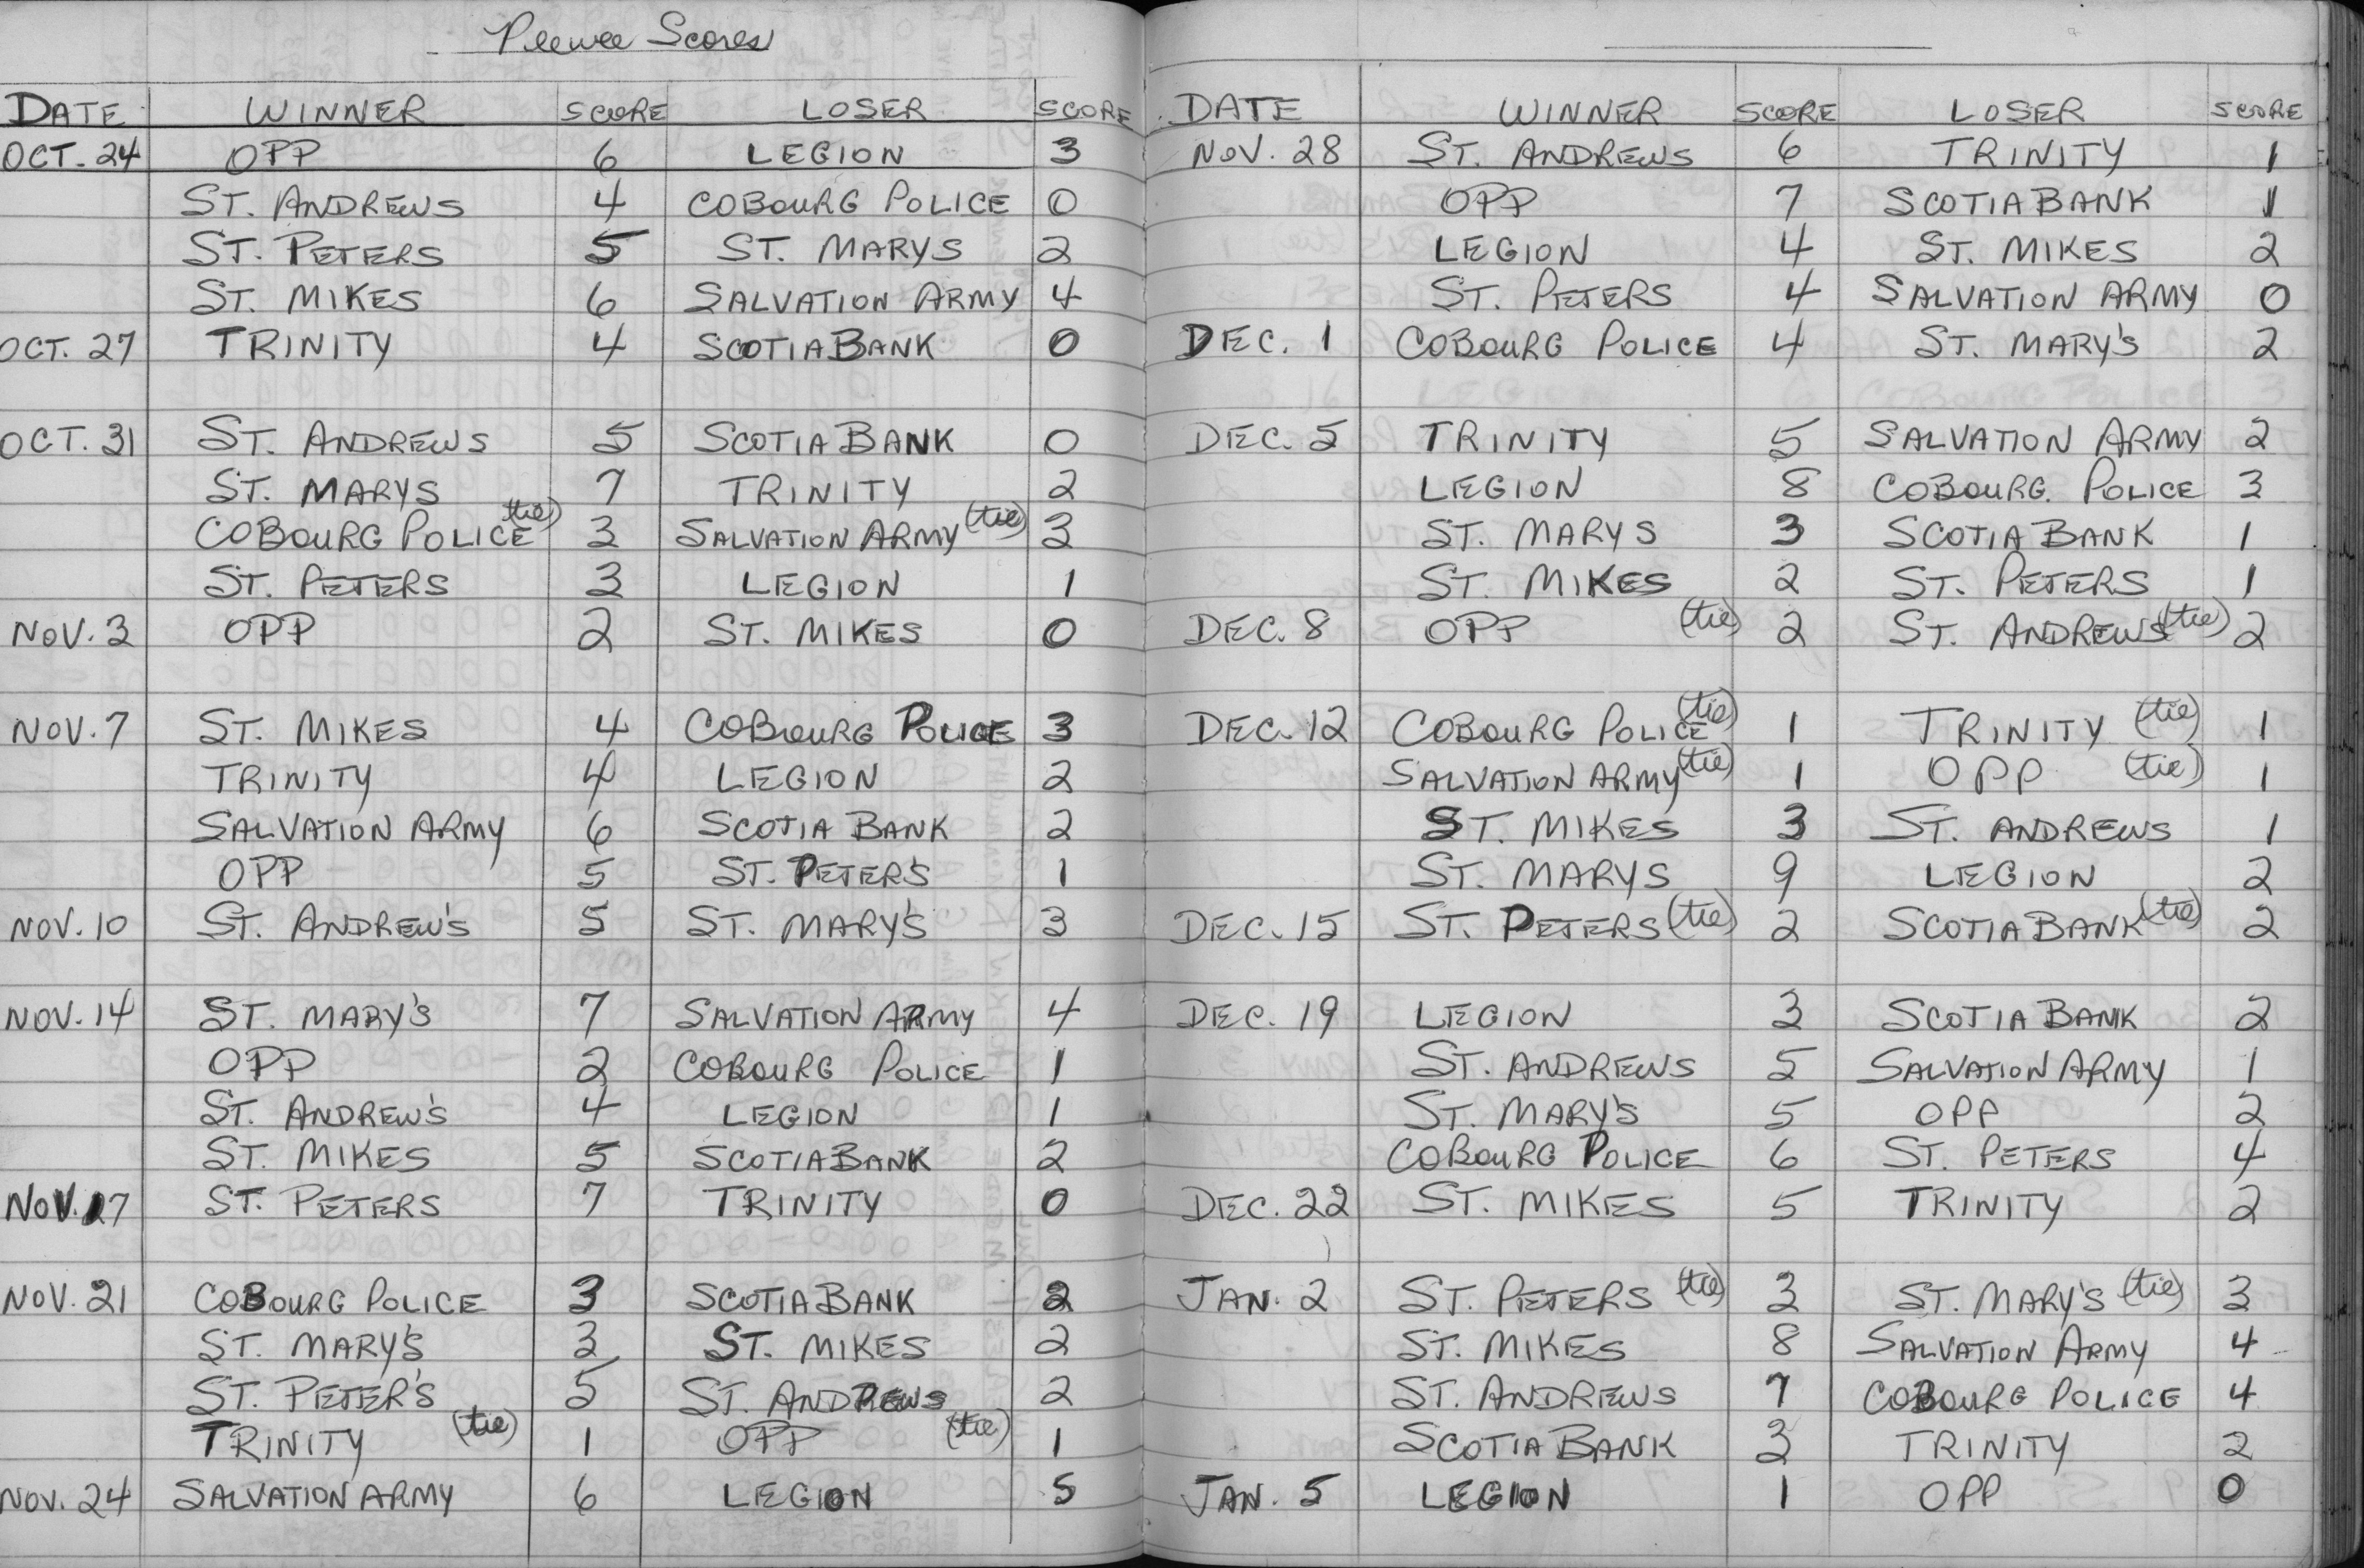 Peewee Scores
DATE WINNER SCORE LOSER SCORE
OCT. 24 OPP 6 LEGION 3
ST. ANDREWS 4 COBOURG POLICE 0
ST. PETERS 5 ST. MARYS 2
ST. MIKES 6 SALVATION ARMY 4
OCT. 27 TRINITY 4 SCOTIA BANK 0
OCT. 31 ST. ANDREWS 5 SCOTIA BANK 0
ST. MARYS 7 TRINITY 2
COBOURG POLICE (tie) 3 SALVATION ARMY (tie) 3
ST. PETERS 3 LEGION 1
NOV. 3 OPP 2 ST. MIKES 0
NOV. 7 ST. MIKES 4 COBOURG POLICE 3
TRINITY 4 LEGION 2
SALVATION ARMY 6 SCOTIA BANK 2
OPP 5 ST. PETER'S 1
NOV. 10 ST. ANDREW'S 5 ST. MARY'S 3
NOV. 14 ST. MARY'S 7 SALVATION ARMY 4
OPP 2 COBOURG POLICE 1
ST. ANDREW'S 4 LEGION 1
ST. MIKES 5 SCOTIA BANK 2
NOV. 17 ST. PETERS 7 TRINITY 0
NOV. 21 COBOURG POLICE 3 SCOTIA BANK 2
ST. MARY'S 3 ST. MIKES 2
ST. PETER'S 5 ST. ANDREWS 2
TRINITY (tie) 1 OPP (tie) 1
NOV. 24 SALVATION ARMY 6 LEGION 5
DATE WINNER SCORE LOSER SCORE
NOV. 28 ST. ANDREWS 6 TRINITY 1
OPP 7 SCOTIA BANK 1
LEGION 4 ST. MIKES 2
ST. PETERS 4 SALVATION ARMY 0
DEC. 1 COBOURG POLICE 4 ST. MARY'S 2
DEC. 5 TRINITY 5 SALVATION ARMY 2
LEGION 8 COBOURG. POLICE 3
ST. MARYS 3 SCOTIA BANK 1
ST. MIKES 2 ST. PETERS 1
DEC. 8 OPP (tie) 2 ST. ANDREWS (tie) 2
DEC. 12 COBOURG POLICE (tie) 1 TRINITY (tie) 1
SALVATION ARMY (tie) 1 OPP (tie) 1
ST. MIKES 3 ST. ANDREWS 1
ST. MARYS 9 LEGION 2
DEC. 15 ST. PETERS (tie) 2 SCOTIA BANK (tie) 2
DEC. 19 LEGION 3 SCOTIA BANK 2
ST. ANDREWS 5 SALVATION ARMY 1
ST. MARY'S 5 OPP 2
COBOURG POLICE 6 ST. PETERS 4
DEC. 22 ST. MIKES 5 TRINITY 2
JAN. 2 ST. PETERS (tie) 3 ST. MARY'S (tie) 3
ST. MIKES 8 SALVATION ARMY 4
ST. ANDREWS 7 COBOURG POLICE 4
SCOTIA BANK 3 TRINITY 2
JAN. 5 LEGION 1 OPP 0